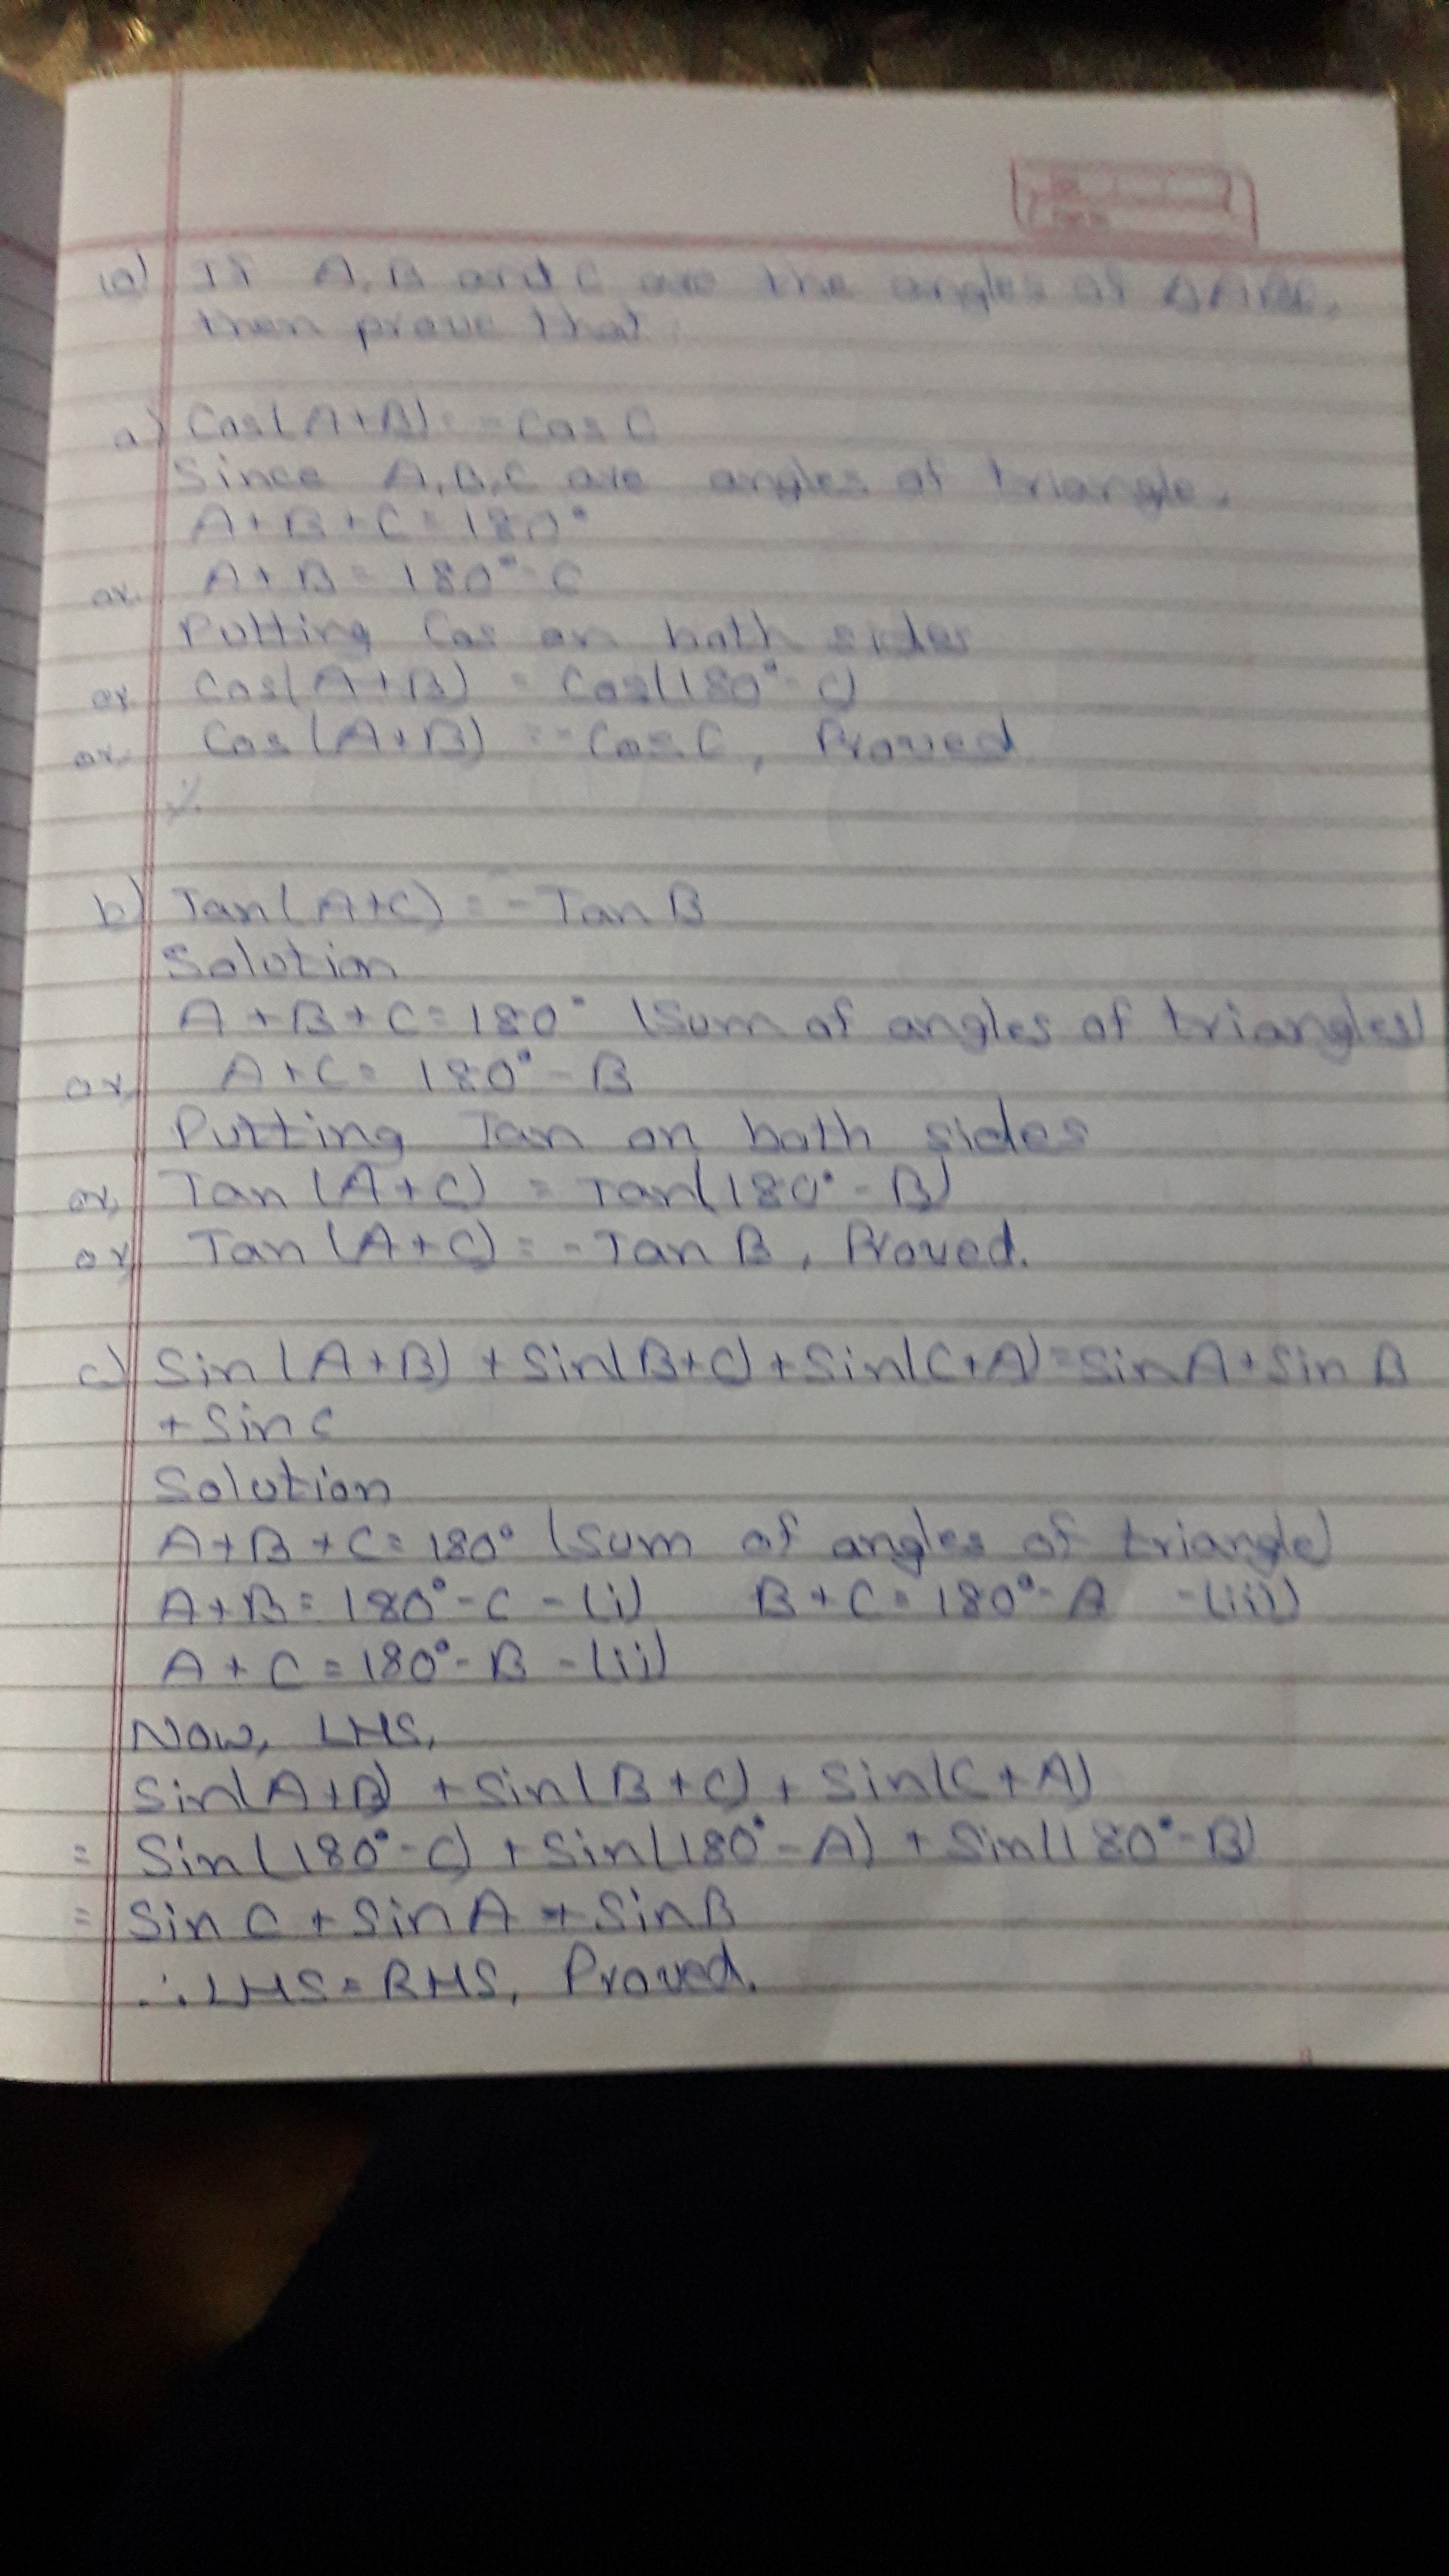 10) If A, B and C are the angles of ΔABC,
then prove that:
a) Cos(A+B) = -Cos C
Since A, B, C are angles of triangle.
A+B+C=180°
or. A+B=180°-C
Putting Cos on both sides
or. Cos(A+B) = Cos(180°-C)
or. Cos(A+B) = -Cos C, Proved
b) Tan(A+C) = -Tan B
Solution
A+B+C=180° (Sum of angles of triangles)
or, A+C=180°-B
Putting Tan on both sides
or, Tan(A+C) = Tan(180°-B)
or, Tan(A+C) = -Tan B, Proved.
c) Sin(A+B) + Sin(B+C) + Sin(C+A) = Sin A + Sin B
+ Sin C
Solution
A+B+C=180° (Sum of angles of triangle)
A+B=180°-C -(i) B+C=180°-A -(iii)
A+C=180°-B -(ii)
Now, LHS,
Sin(A+B) + Sin(B+C) + Sin(C+A)
= Sin(180°-C) + Sin(180°-A) + Sin(180°-B)
= Sin C + Sin A + Sin B
∴ LHS = RHS, Proved.